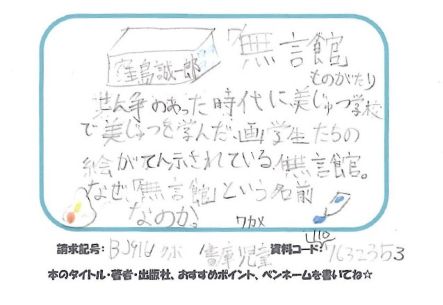 「無言館
ものがたり
窪島誠一郎
せん争のあった時代に、美じゅつ学校
で美じゅつを学んだ画学生たちの
絵がてん示されている無言館。
なぜ「無言館」という名前
なのか?
ワカメ
請求記号: 書庫児童 資料コード:
本のタイトル・著者・出版社、おすすめポイント、ペンネームを書いてね☆